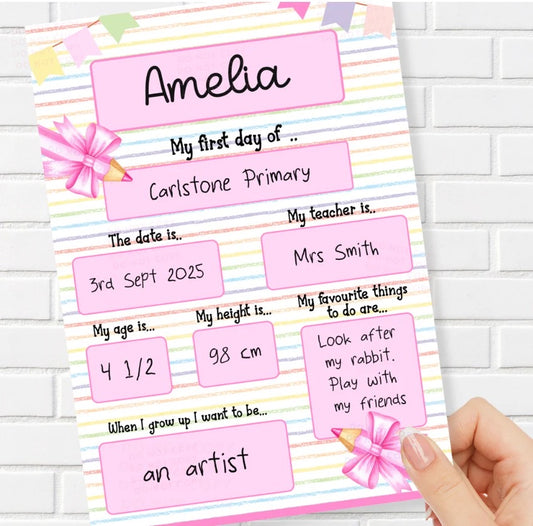 Amelia
My first day of ..
Carlstone Primary
The date is..
3rd Sept 2025
My teacher is..
Mrs Smith
My age is...
4 1/2
My height is...
98 cm
My favourite things
to do are...
Look after
my rabbit.
Play with
my friends
When I grow up I want to be...
an artist